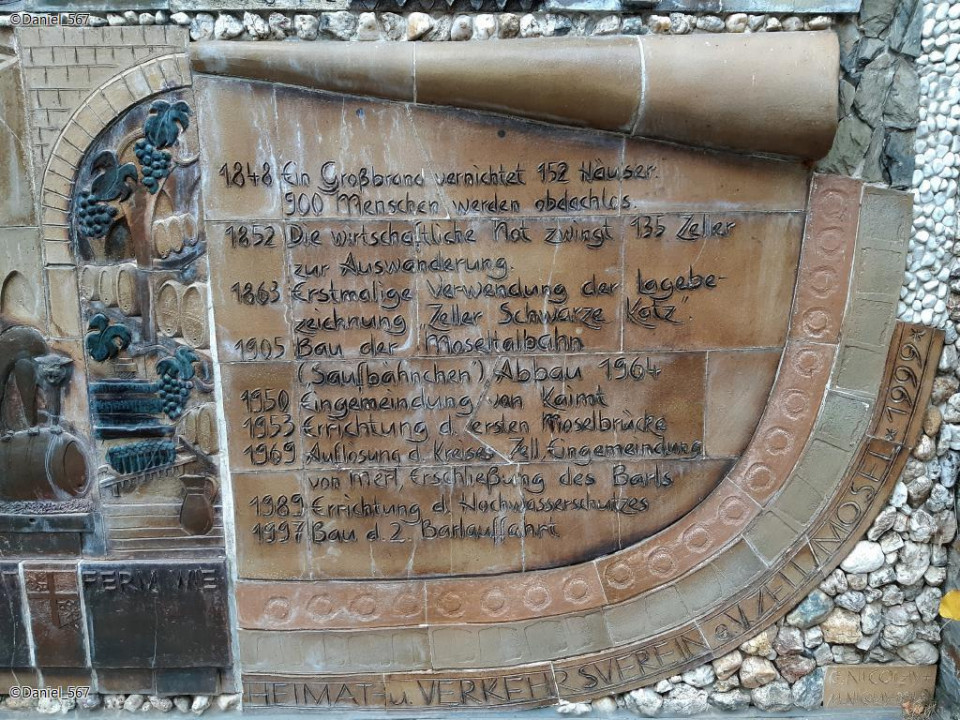 ©Daniel_567
1848 Ein Großbrand vernichtet 152 Häuser.
900 Menschen werden obdachlos.
1852 Die wirtschaftliche Not zwingt 135 Zeller
zur Auswanderung.
1863 Erstmalige Verwendung der Lagebe-
zeichnung „Zeller Schwarze Katz“.
1905 Bau der Moseltalbahn
(Saufbähnchen) Abbau 1964
1950 Eingemeindung von Kaimt
1953 Errichtung d. ersten Moselbrücke
1969 Auflösung d. Kreises Zell, Eingemeindung
von Merl, Erschließung des Barls
1989 Errichtung d. Hochwasserschutzes
1997 Bau d. 2. Barlauffahrt
HEIMAT- u. VERKEHRSVEREIN e.V. ZELL/MOSEL *1999*
©Daniel_567